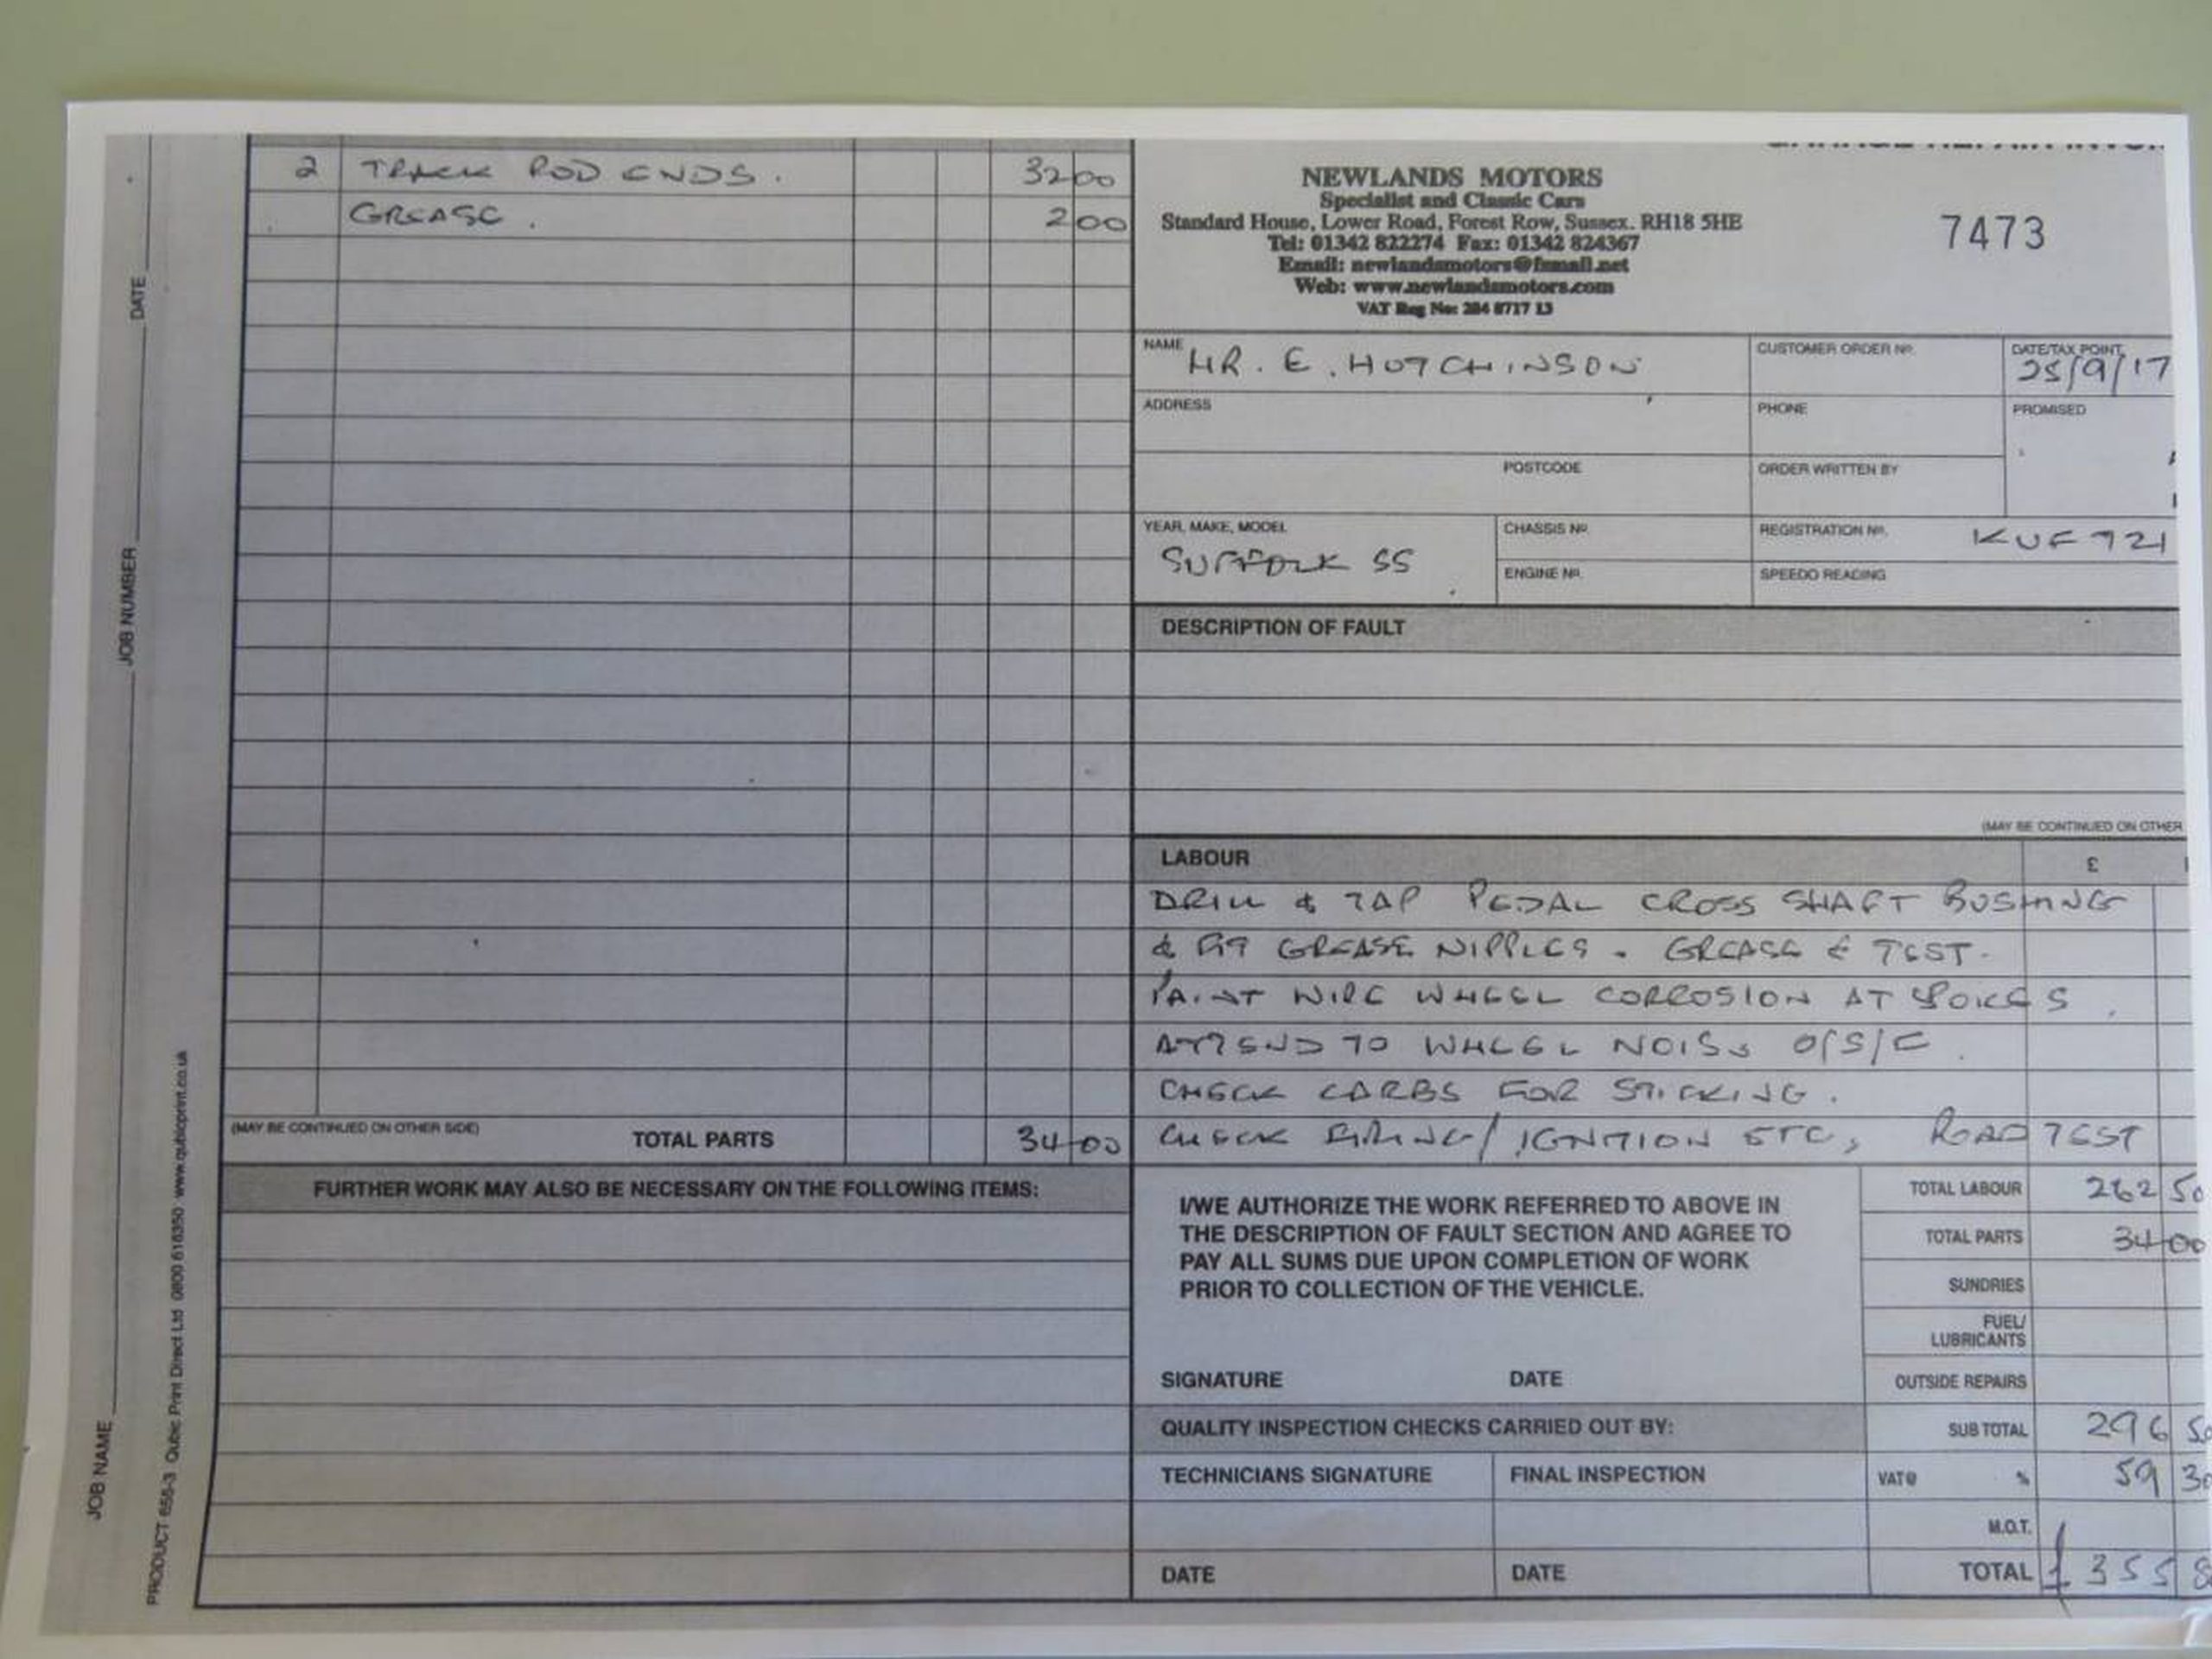 2 TRACK ROD ENDS. 32 00
GREASE. 2 00
(MAY BE CONTINUED ON OTHER SIDE) TOTAL PARTS 34 00
FURTHER WORK MAY ALSO BE NECESSARY ON THE FOLLOWING ITEMS:
JOB NAME JOB NUMBER DATE
PRODUCT 658-3 Qubic Print Direct Ltd 0800 616350 www.qubicprint.co.uk
NEWLANDS MOTORS
Specialist and Classic Cars
Standard House, Lower Road, Forest Row, Sussex. RH18 5HE
Tel: 01342 822274 Fax: 01342 824367
Email: newlandsmotors@fsmail.net
Web: www.newlandsmotors.com
VAT Reg No: 284 8717 13
7473
NAME MR. E. HUTCHINSON
CUSTOMER ORDER No.
DATE/TAX POINT 25/9/17
ADDRESS
PHONE
PROMISED
POSTCODE
ORDER WRITTEN BY
YEAR, MAKE, MODEL SUFFOLK SS
CHASSIS No.
REGISTRATION No. KUF 721
ENGINE No.
SPEEDO READING
DESCRIPTION OF FAULT
(MAY BE CONTINUED ON OTHER
LABOUR £
DRILL & TAP PEDAL CROSS SHAFT BUSHING
& FIT GREASE NIPPLES. GREASE & TEST.
PAINT WIRE WHEEL CORROSION AT SPOKES.
ATTEND TO WHEEL NOISE O/S/F.
CHECK CARBS FOR STICKING.
CHECK FIRING/IGNITION ETC, ROAD TEST
I/WE AUTHORIZE THE WORK REFERRED TO ABOVE IN
THE DESCRIPTION OF FAULT SECTION AND AGREE TO
PAY ALL SUMS DUE UPON COMPLETION OF WORK
PRIOR TO COLLECTION OF THE VEHICLE.
SIGNATURE DATE
TOTAL LABOUR 262 50
TOTAL PARTS 34 00
SUNDRIES
FUEL/
LUBRICANTS
OUTSIDE REPAIRS
QUALITY INSPECTION CHECKS CARRIED OUT BY:
SUB TOTAL 296 50
TECHNICIANS SIGNATURE FINAL INSPECTION
VAT@ % 59 30
M.O.T.
DATE DATE
TOTAL £ 355 8